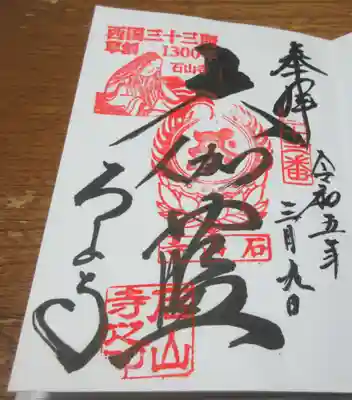 奉拝
十三番
令和五年
三月九日
大伽藍
石山寺
西国三十三所
草創1300年
石山寺
石山
寺之印